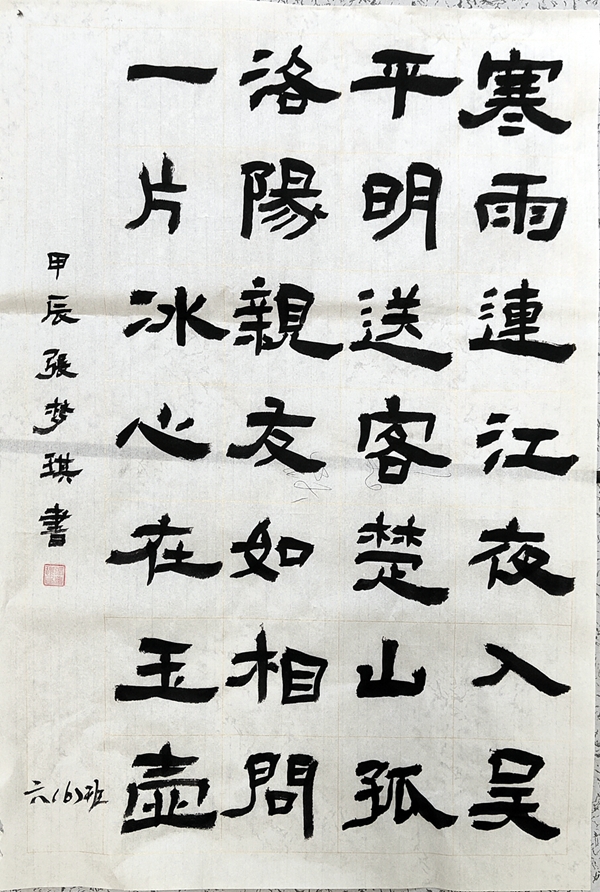 寒雨連江夜入吴
平明送客楚山孤
洛陽親友如相問
一片冰心在玉壶
甲辰張梦琪書
六(6)班